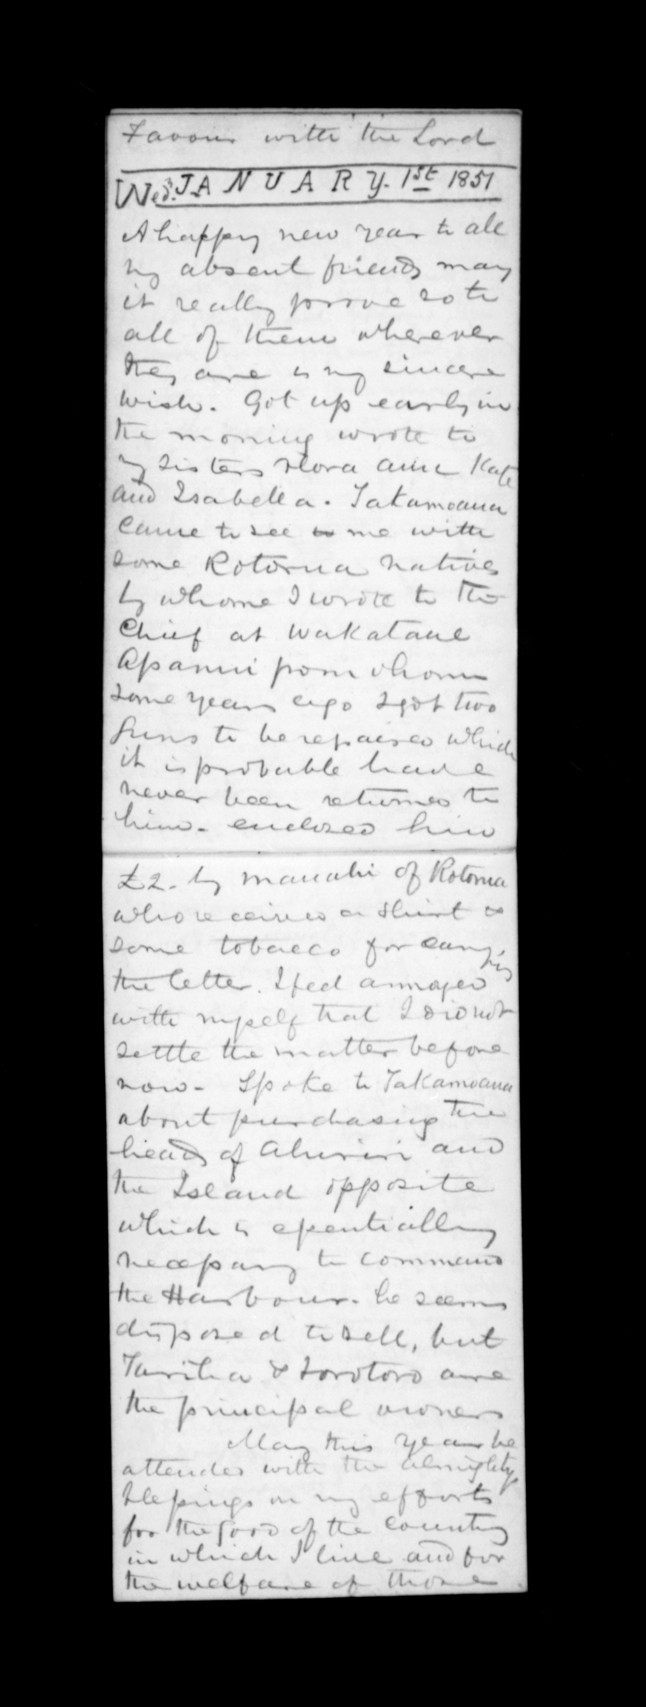 Favour with the Lord
Wed. JANUARY. 1st 1851
A happy new year to all
my absent friends may
it really prove so to
all of them wherever
they are is my sincere
wish. Got up early in
the morning wrote to
my sisters Flora Kate
and Isabella. Takamoana
came to see me with
some Rotorua natives
by whome I wrote to the
Chief at Wakatane
Apanui from whom
some years ago I got two
Guns to be repaired which
it is probable have
never been returned to
him. enclosed him
£2. by Manahi of Rotorua
who received a shirt &
some tobacco for carrying
the letter. I feel annoyed
with myself that I did not
settle the matter before
now. Spoke to Takamoana
about purchasing the
heads of Ahuriri and
the Island opposite
which is essentially
necessary to command
the Harbour. he seems
disposed to sell, but
Tariha & Torotoro are
the principal owners
May this year be
attended with the almightys
blessings on my efforts
for the good of the country
in which I live and for
the welfare of those